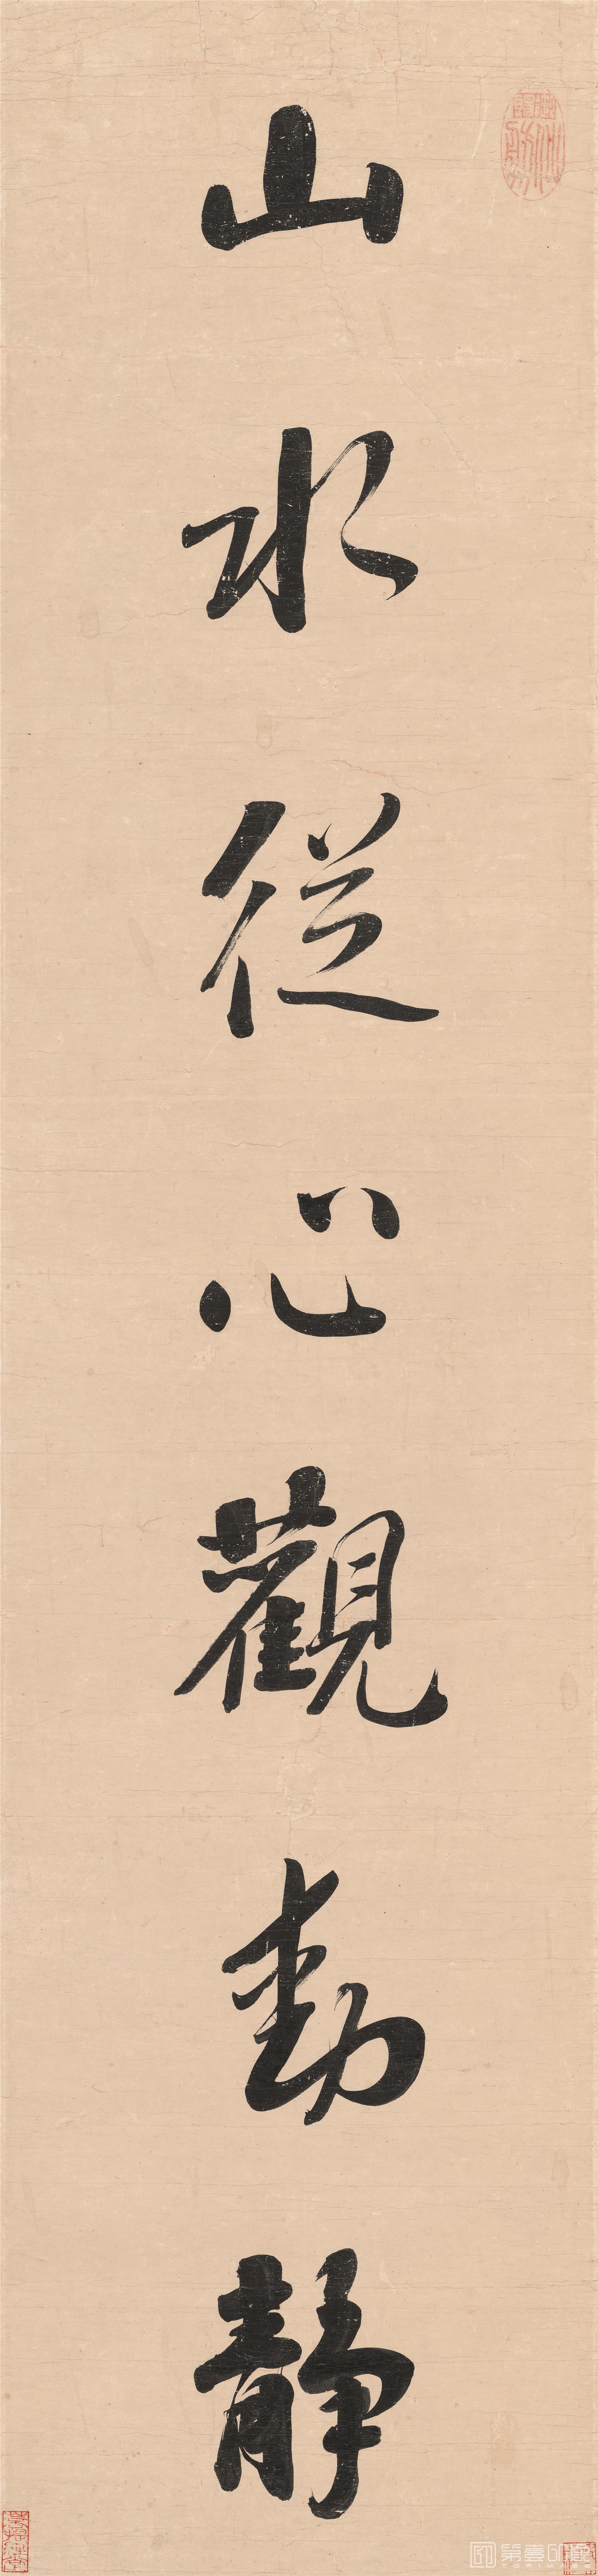 山水從心觀動靜
第壹印象